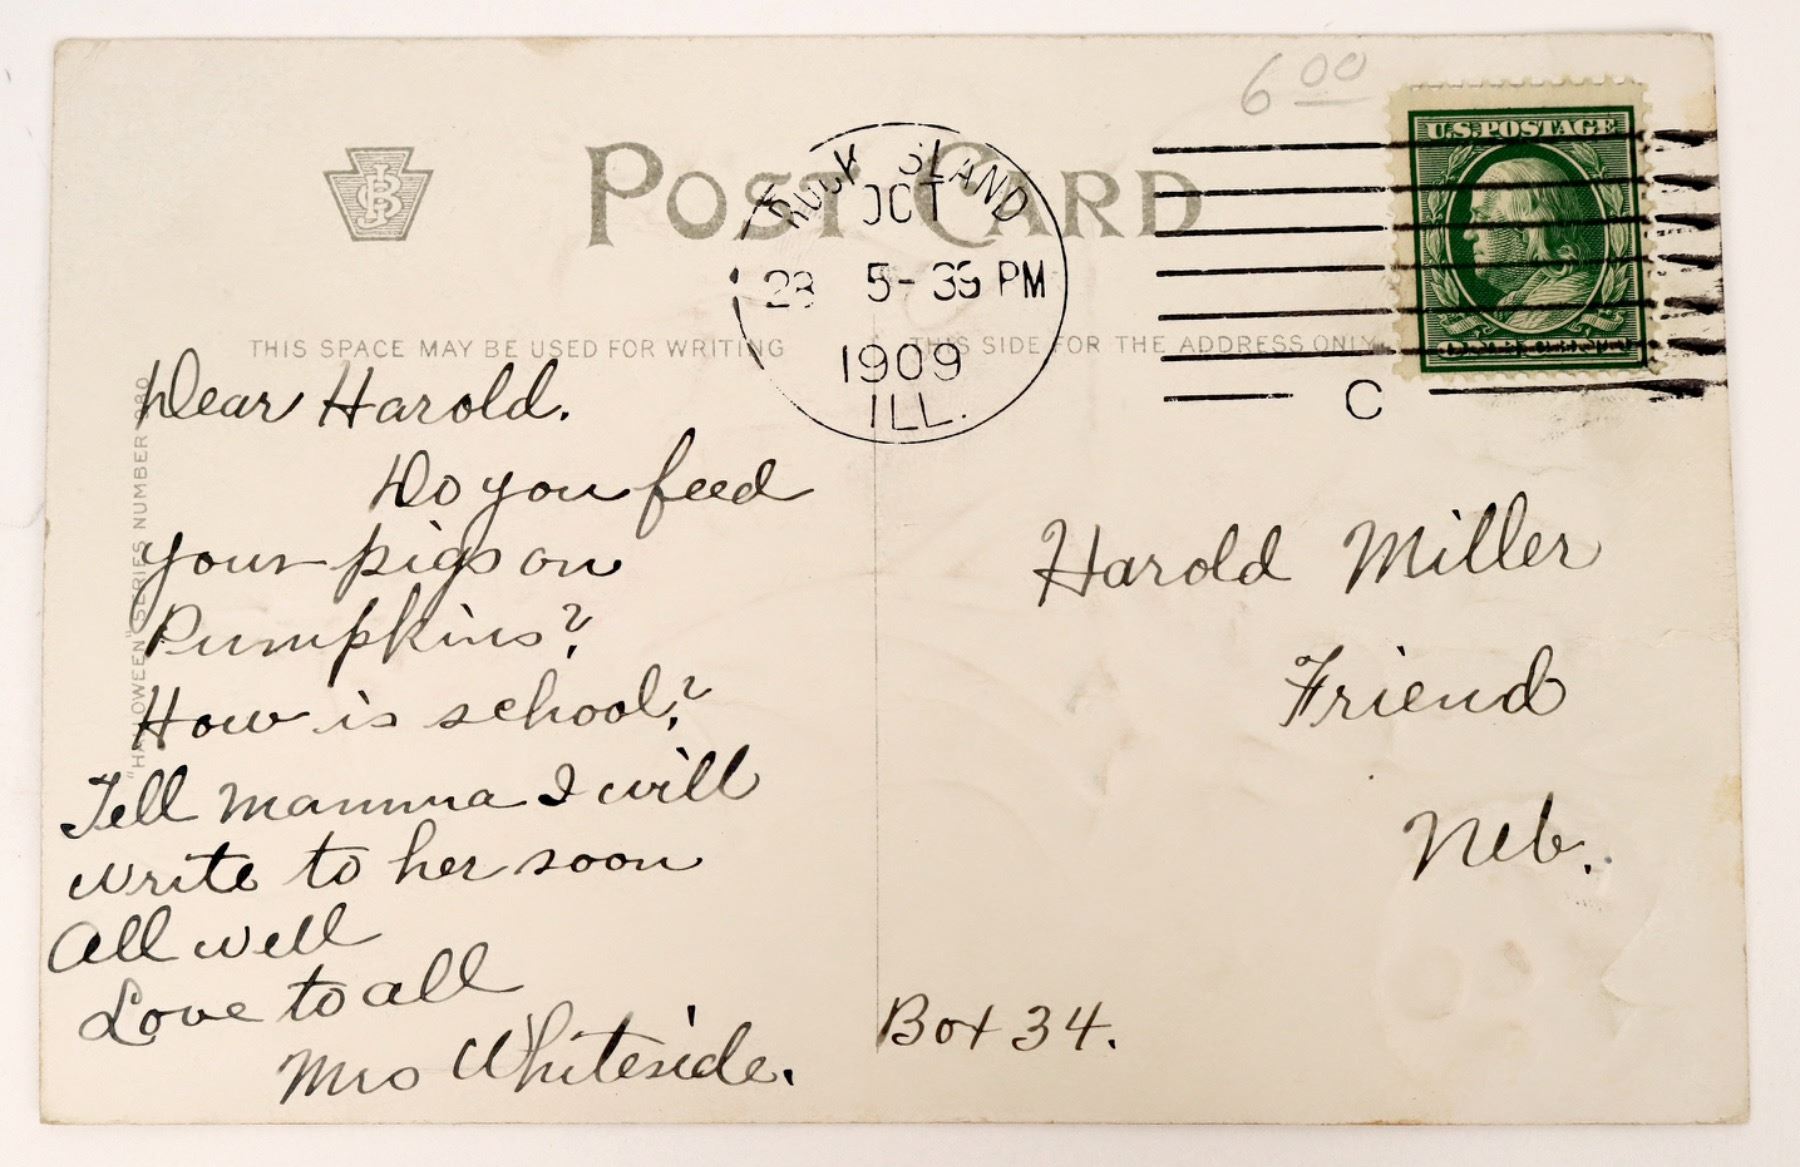 6 00
U.S. POSTAGE
POST CARD
ROCK ISLAND
OCT
5- PM
1909
ILL.
C
THIS SPACE MAY BE USED FOR WRITING
THIS SIDE FOR THE ADDRESS ONLY
"HALLOWEEN" SERIES NUMBER
Dear Harold.
Do you feed
your pigs on
Pumpkins?
How is school?
Tell mamma I will
write to her soon
All well
Love to all
Mrs Whiteside.
Harold Miller
Friend
Neb.
Box 34.